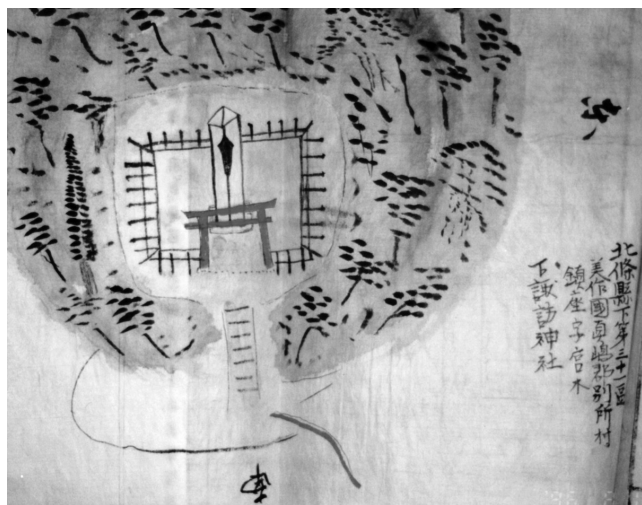 北條縣下第三十一區
美作國真嶋郡別所村
鎮座字宮木
下諏訪神社